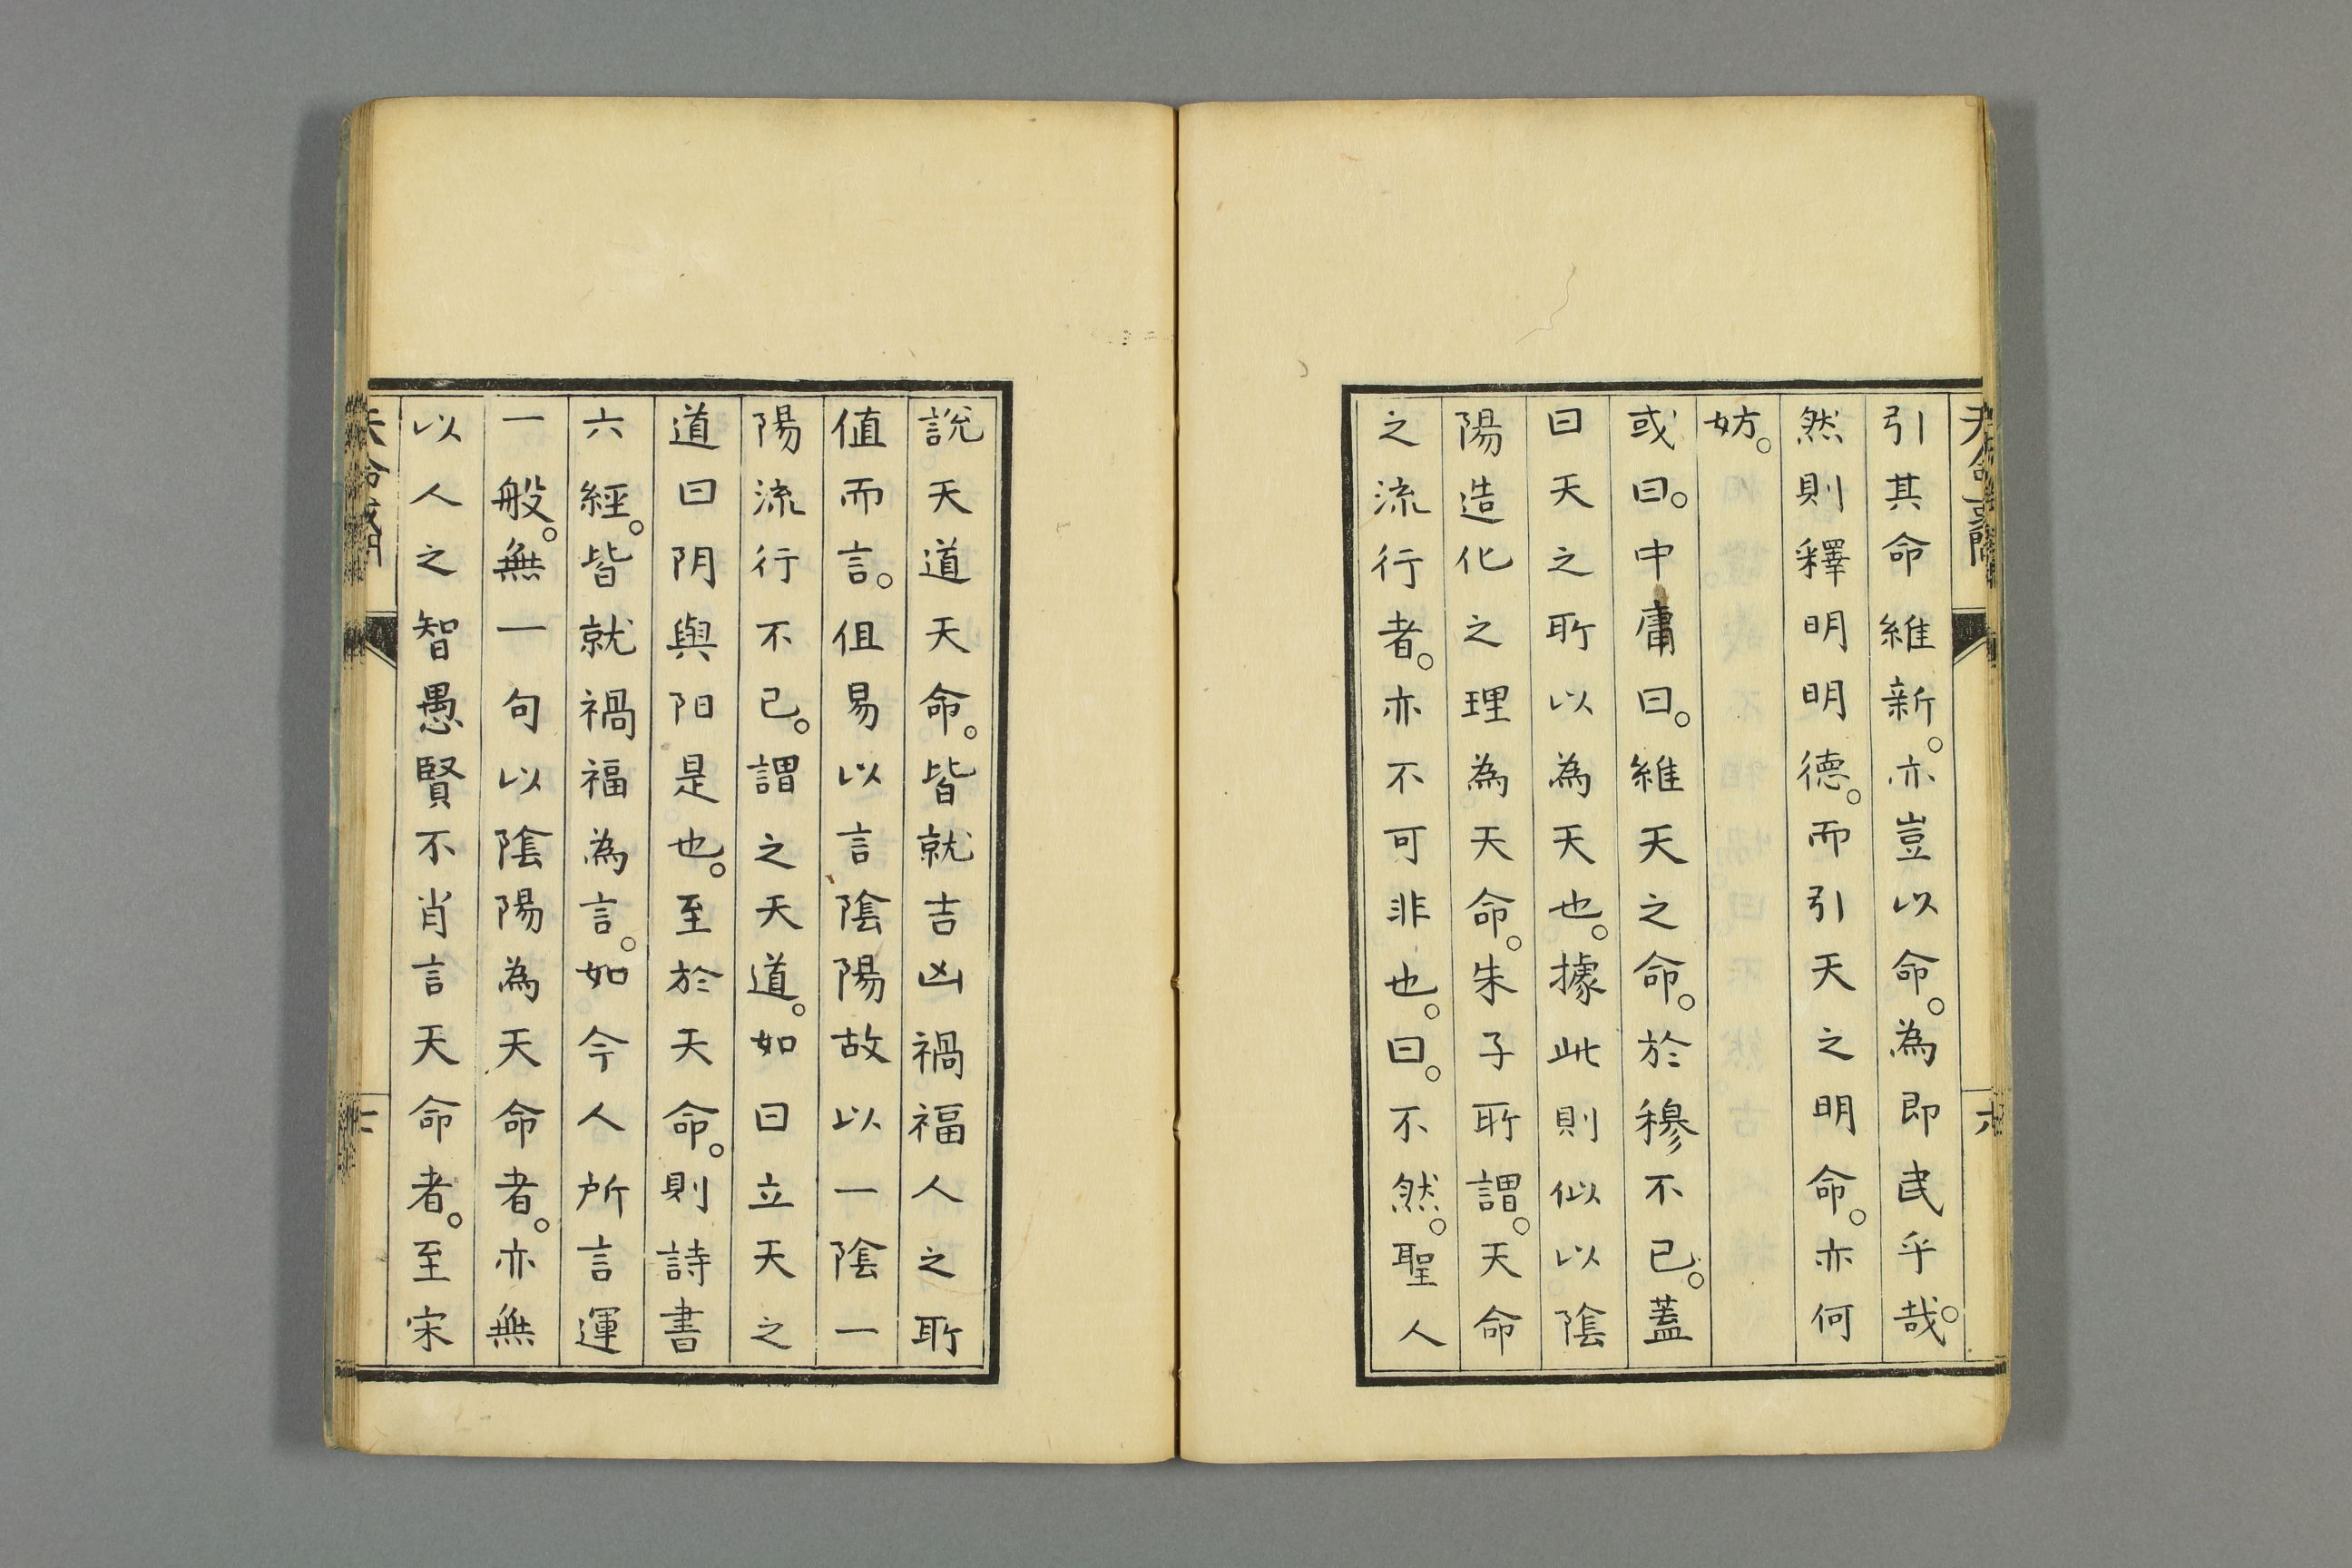 引其命維新。亦豈以命。為即民乎哉。
然則釋明明德。而引天之明命。亦何
妨。
或曰。中庸曰。維天之命。於穆不已。蓋
曰天之所以為天也。據此則似以陰
陽造化之理為天命。朱子所謂。天命
之流行者。亦不可非也。曰。不然。聖人
說天道天命。皆就吉凶禍福人之所
值而言。但易以言陰陽故以一陰一
陽流行不已。謂之天道。如曰立天之
道曰阴與阳是也。至於天命。則詩書
六經。皆就禍福為言。如今人所言運
一般。無一句以陰陽為天命者。亦無
以人之智愚賢不肖言天命者。至宋